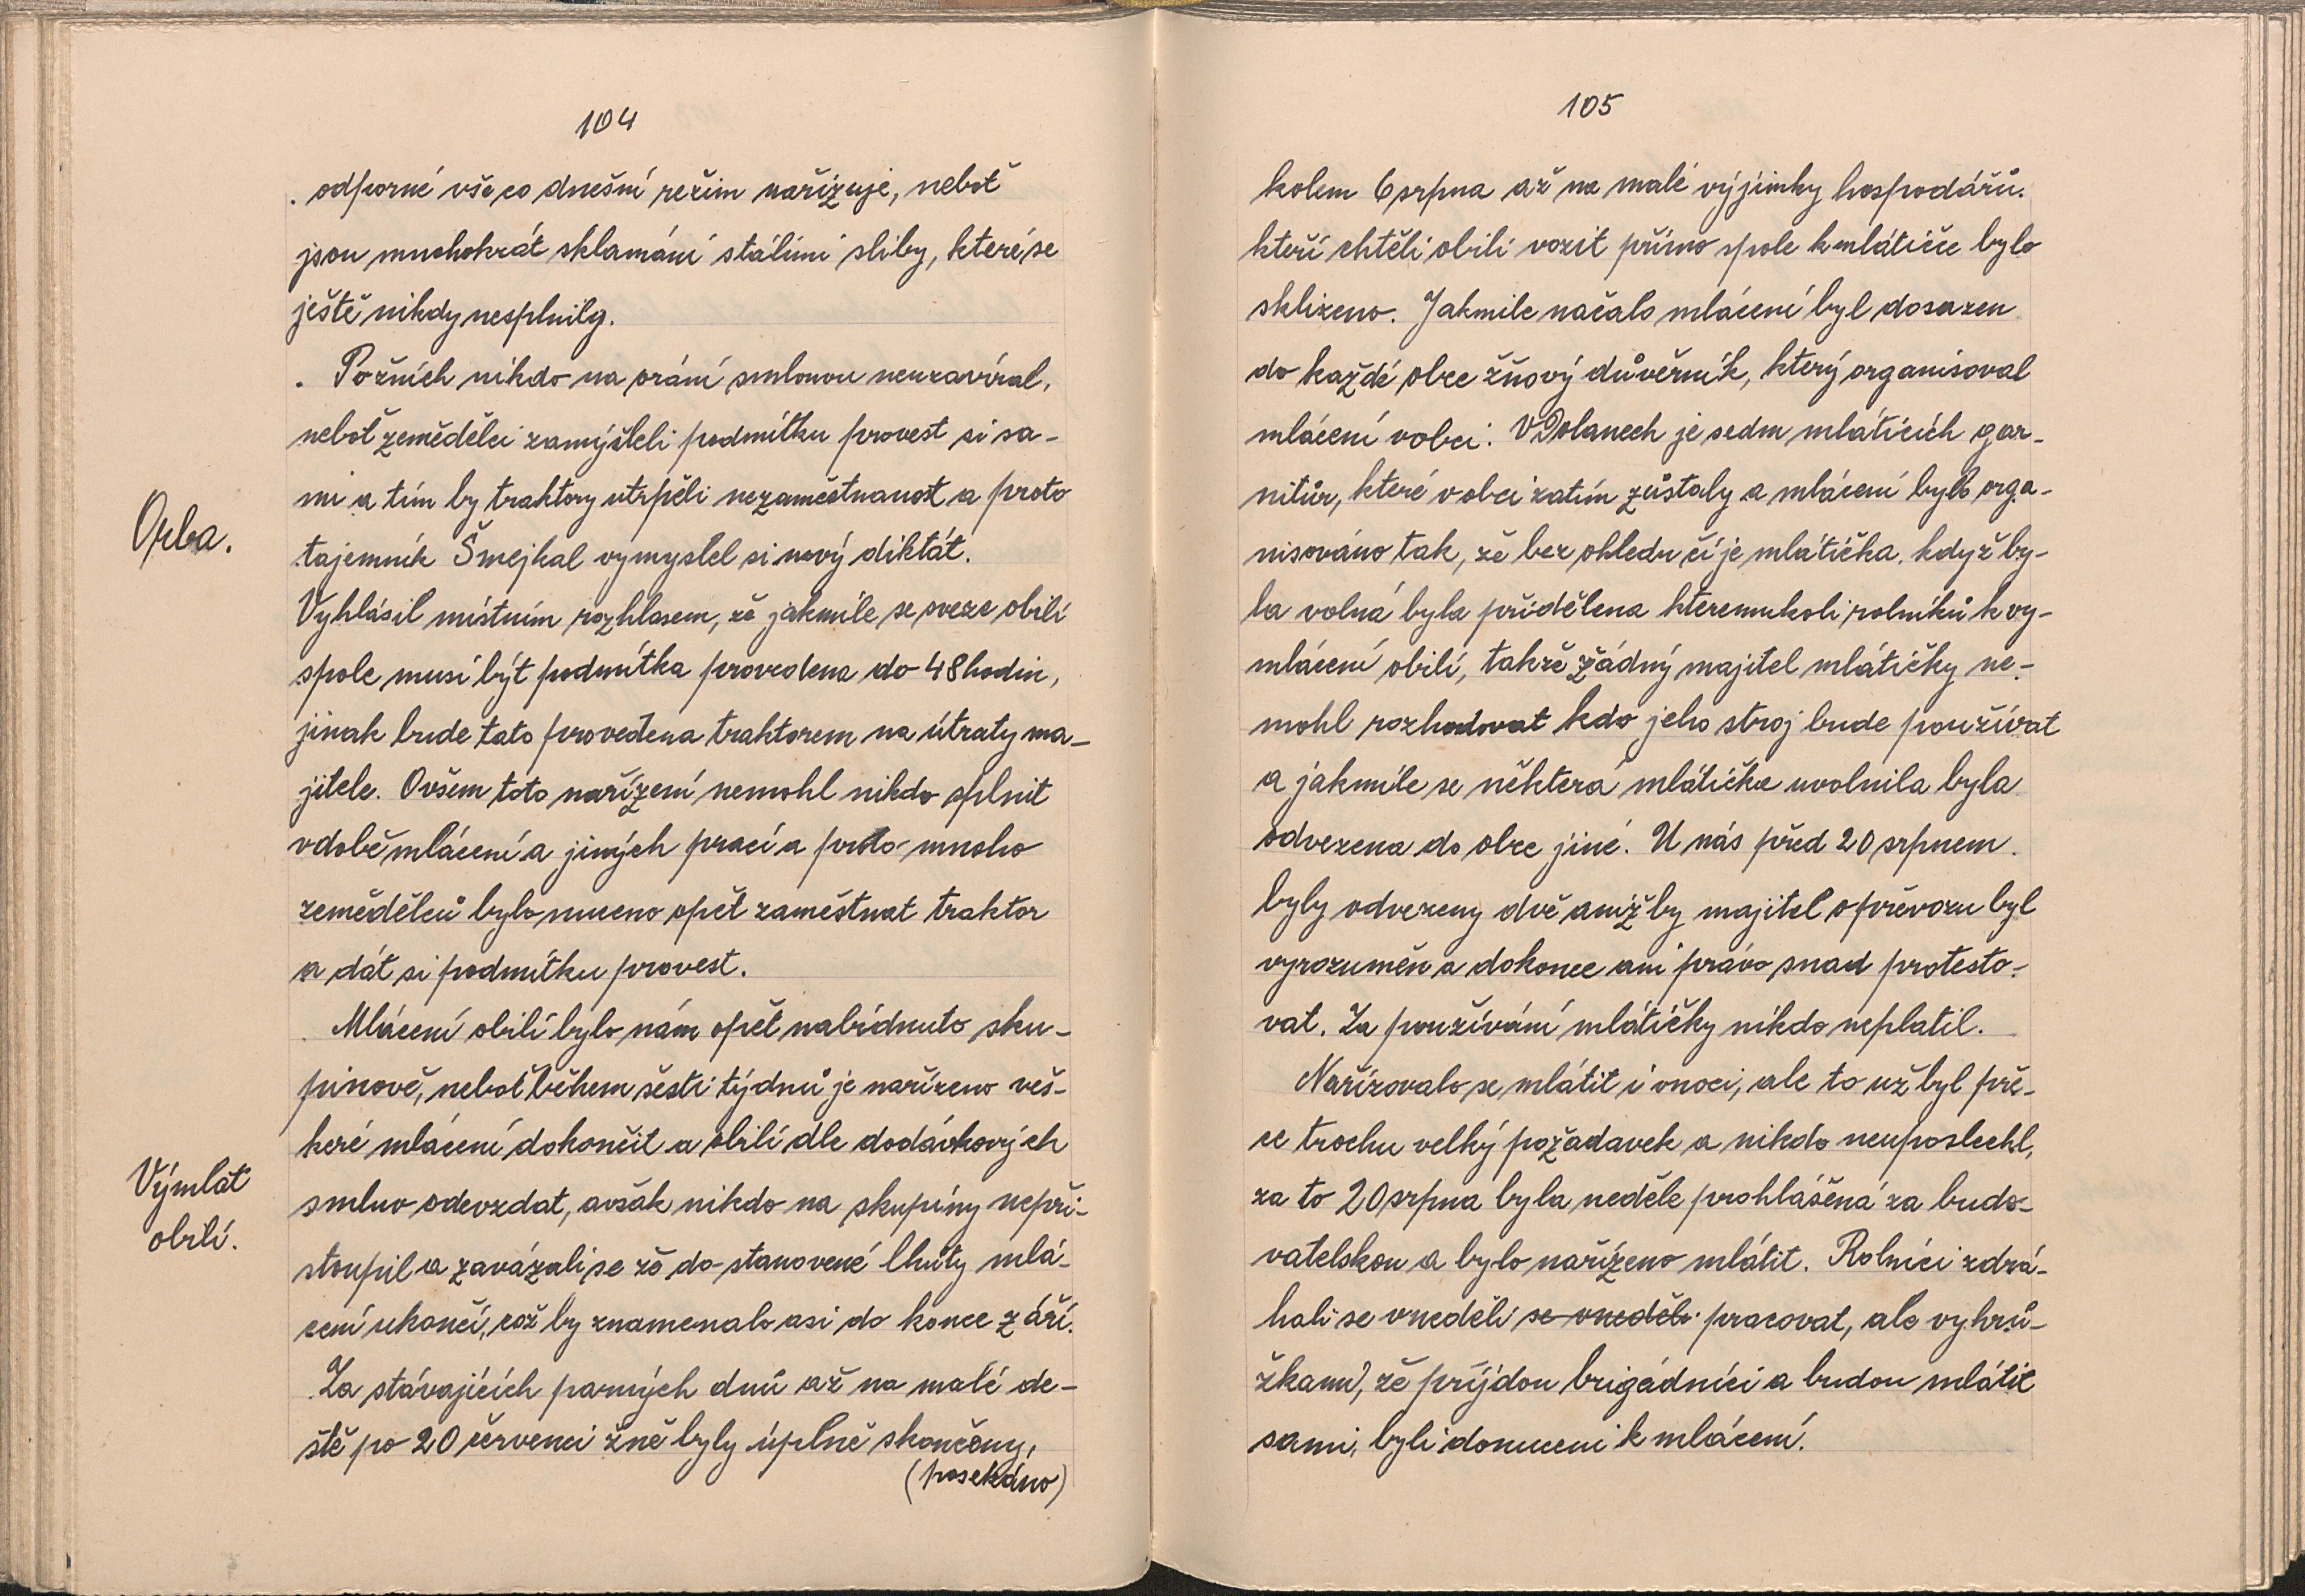 104
odporné vše co dnešní režim nařizuje, neboť
jsou mnohokrát sklamání stálími sliby, které se
ještě nikdy nesplnily.
Požních nikdo na orání smlouvu neuzavíral,
neboť zemědělci zamýšleli podmítku provest si sa-
mi a tím by traktory utrpěli nezaměstnanost a proto
Orba.
tajemník Šmejkal vymyslel si nový diktát.
Vyhlásil místním rozhlasem, že jakmíle se sveze obilí
spole musí být podmítka provedena do 48 hodin,
jinak bude tato provedena traktorem na útraty ma-
jitele. Ovšem toto nařízení nemohl nikdo splnit
vdobě mlácení a jiných prací a proto mnoho
zemědělců bylo nuceno opět zaměstnat traktor
a dát si podmítku provest.
Mlácení obilí bylo nám opět nabídnuto sku-
pinově, neboť během šesti týdnů je nařízeno veš-
keré mlácení dokončit a obilí dle dodávkových
Výmlat
obilí.
smluv odevzdat, avšak nikdo na skupiny nepři-
stoupil a zavázali se že do stanovené lhůty mlá-
cení ukončí, což by znamenalo asi do konce září.
Za stávajících parných dnů až na malé de-
ště po 20 červenci žně byly úplně skončeny,
(posekáno)
105
kolem 6 srpna až na malé výjimky hospodářů.
kteří chtěli obilí vozit přímo spole k mlátičce bylo
sklizeno. Jakmile načalo mlácení byl dosazen
do každé obce žňový důvěrník, který organisoval
mlácení vobci. VDolanech je sedm mlátících gar-
nitůr, které v obci zatím zůstaly a mlácení bylo orga-
nisováno tak, že bez ohledu čí je mlátička. když by-
la volná byla přidělena kteremukoli rolníků k vy-
mlácení obilí, takže žádný majitel mlátičky ne-
mohl rozhodovat kdo jeho stroj bude používat
a jakmíle se některá mlátička uvolnila byla
odvezena do obce jiné. U nás před 20 srpnem
byly odvezeny dvě aniž by majitel o převozu byl
vyrozuměn a dokonce ani právo snad protesto-
vat. Za používání mlátičky nikdo neplatil.
Nařizovalo se mlátit i vnoci, ale to už byl pře-
ce trochu velký požadavek a nikdo neuposlechl,
za to 20 srpna byla neděle prohlášená za budo-
vatelskou a bylo nařízeno mlátit. Rolníci zdrá-
hali se vneděli se vneděli pracovat, ale vyhrů-
žkami, že príjdou brigádníci a budou mlátit
sami, byli donuceni k mlácení.